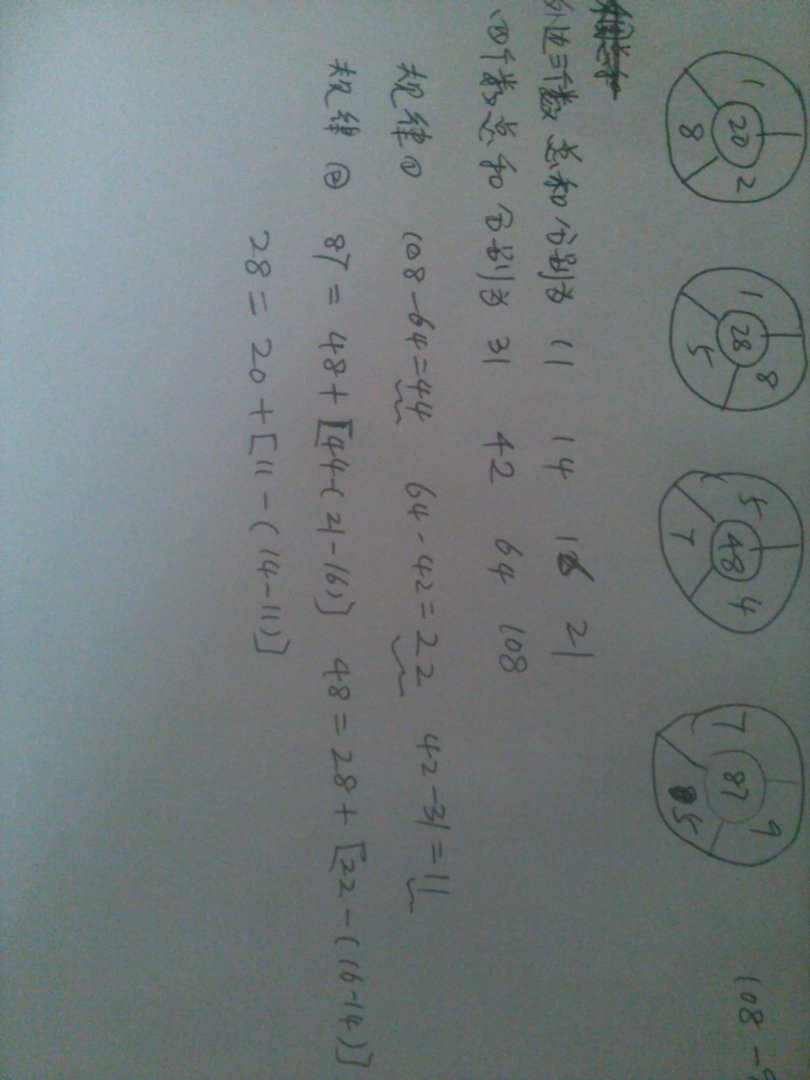 1 20 2 8
1 28 8 5
5 48 4 7
7 87 9 5
108-9
外边三个数总和分别为 11 14 16 21
、四个数总和分别为 31 42 64 108
规律① 108-64=44 64-42=22 42-31=11
规律② 87=48+[44-(21-16)] 48=28+[22-(16-14)]
28=20+[11-(14-11)]